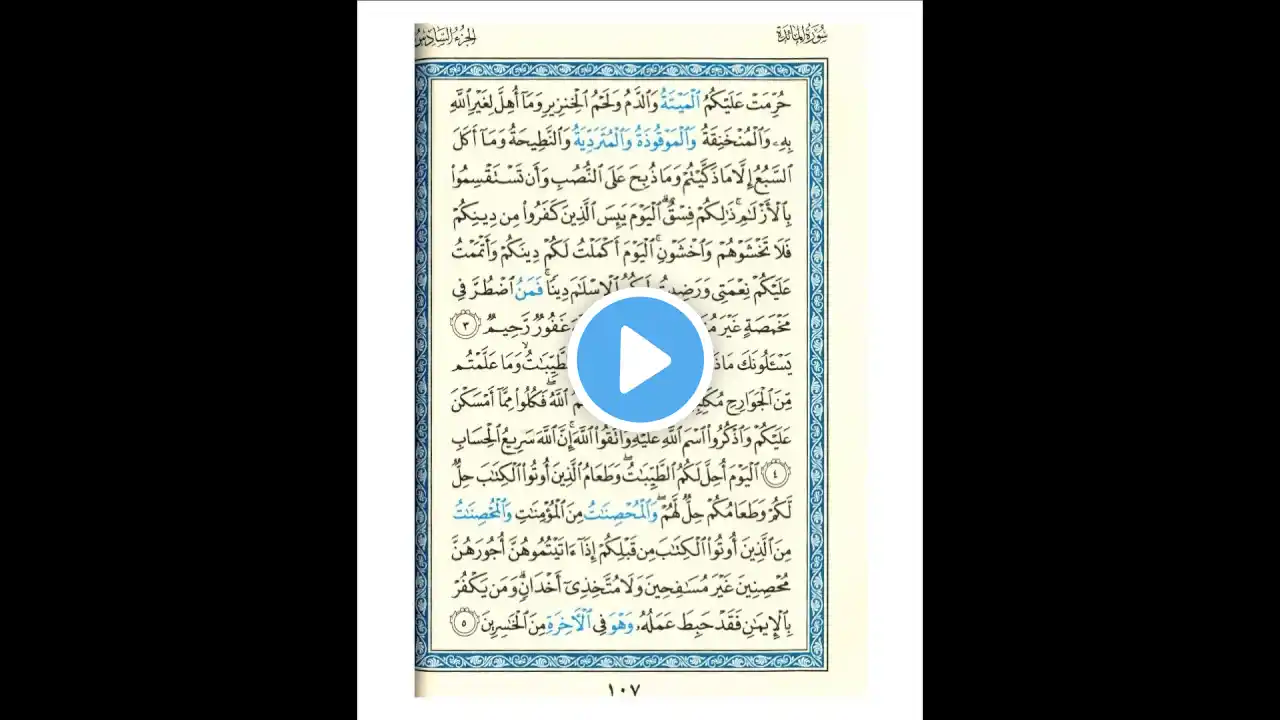 سُورَةُ المَائِدَة
الجزء السادس
حُرِّمَتْ عَلَيْكُمُ ٱلْمَيْتَةُ وَٱلدَّمُ وَلَحْمُ ٱلْخِنزِيرِ وَمَآ أُهِلَّ لِغَيْرِ ٱللَّهِ
بِهِۦ وَٱلْمُنْخَنِقَةُ وَٱلْمَوْقُوذَةُ وَٱلْمُتَرَدِّيَةُ وَٱلنَّطِيحَةُ وَمَآ أَكَلَ
ٱلسَّبُعُ إِلَّا مَا ذَكَّيْتُمْ وَمَا ذُبِحَ عَلَى ٱلنُّصُبِ وَأَن تَسْتَقْسِمُوا۟
بِٱلْأَزْلَٰمِ ۚ ذَٰلِكُمْ فِسْقٌ ۗ ٱلْيَوْمَ يَئِسَ ٱلَّذِينَ كَفَرُوا۟ مِن دِينِكُمْ
فَلَا تَخْشَوْهُمْ وَٱخْشَوْنِ ۚ ٱلْيَوْمَ أَكْمَلْتُ لَكُمْ دِينَكُمْ وَأَتْمَمْتُ
عَلَيْكُمْ نِعْمَتِى وَرَضِيتُ لَكُمُ ٱلْإِسْلَٰمَ دِينًا ۚ فَمَنُ ٱضْطُرَّ فِى
مَخْمَصَةٍ غَيْرَ غَفُورٌ رَّحِيمٌ ٣
يَسْـَٔلُونَكَ وَمَا عَلَّمْتُم
مِّنَ ٱلْجَوَارِحِ ٱللَّهُ ۖ فَكُلُوا۟ مِمَّآ أَمْسَكْنَ
عَلَيْكُمْ وَٱذْكُرُوا۟ ٱسْمَ ٱللَّهِ عَلَيْهِ ۖ وَٱتَّقُوا۟ ٱللَّهَ ۚ إِنَّ ٱللَّهَ سَرِيعُ ٱلْحِسَابِ
٤ ٱلْيَوْمَ أُحِلَّ لَكُمُ ٱلطَّيِّبَٰتُ ۖ وَطَعَامُ ٱلَّذِينَ أُوتُوا۟ ٱلْكِتَٰبَ حِلٌّ
لَّكُمْ وَطَعَامُكُمْ حِلٌّ لَّهُمْ ۖ وَٱلْمُحْصِنَٰتُ مِنَ ٱلْمُؤْمِنَٰتِ وَٱلْمُحْصِنَٰتُ
مِنَ ٱلَّذِينَ أُوتُوا۟ ٱلْكِتَٰبَ مِن قَبْلِكُمْ إِذَآ ءَاتَيْتُمُوهُنَّ أُجُورَهُنَّ
مُحْصِنِينَ غَيْرَ مُسَٰفِحِينَ وَلَا مُتَّخِذِىٓ أَخْدَانٍ ۗ وَمَن يَكْفُرْ
بِٱلْإِيمَٰنِ فَقَدْ حَبِطَ عَمَلُهُۥ وَهْوَ فِى ٱلْأَخِرَةِ مِنَ ٱلْخَٰسِرِينَ ٥
١٠٧